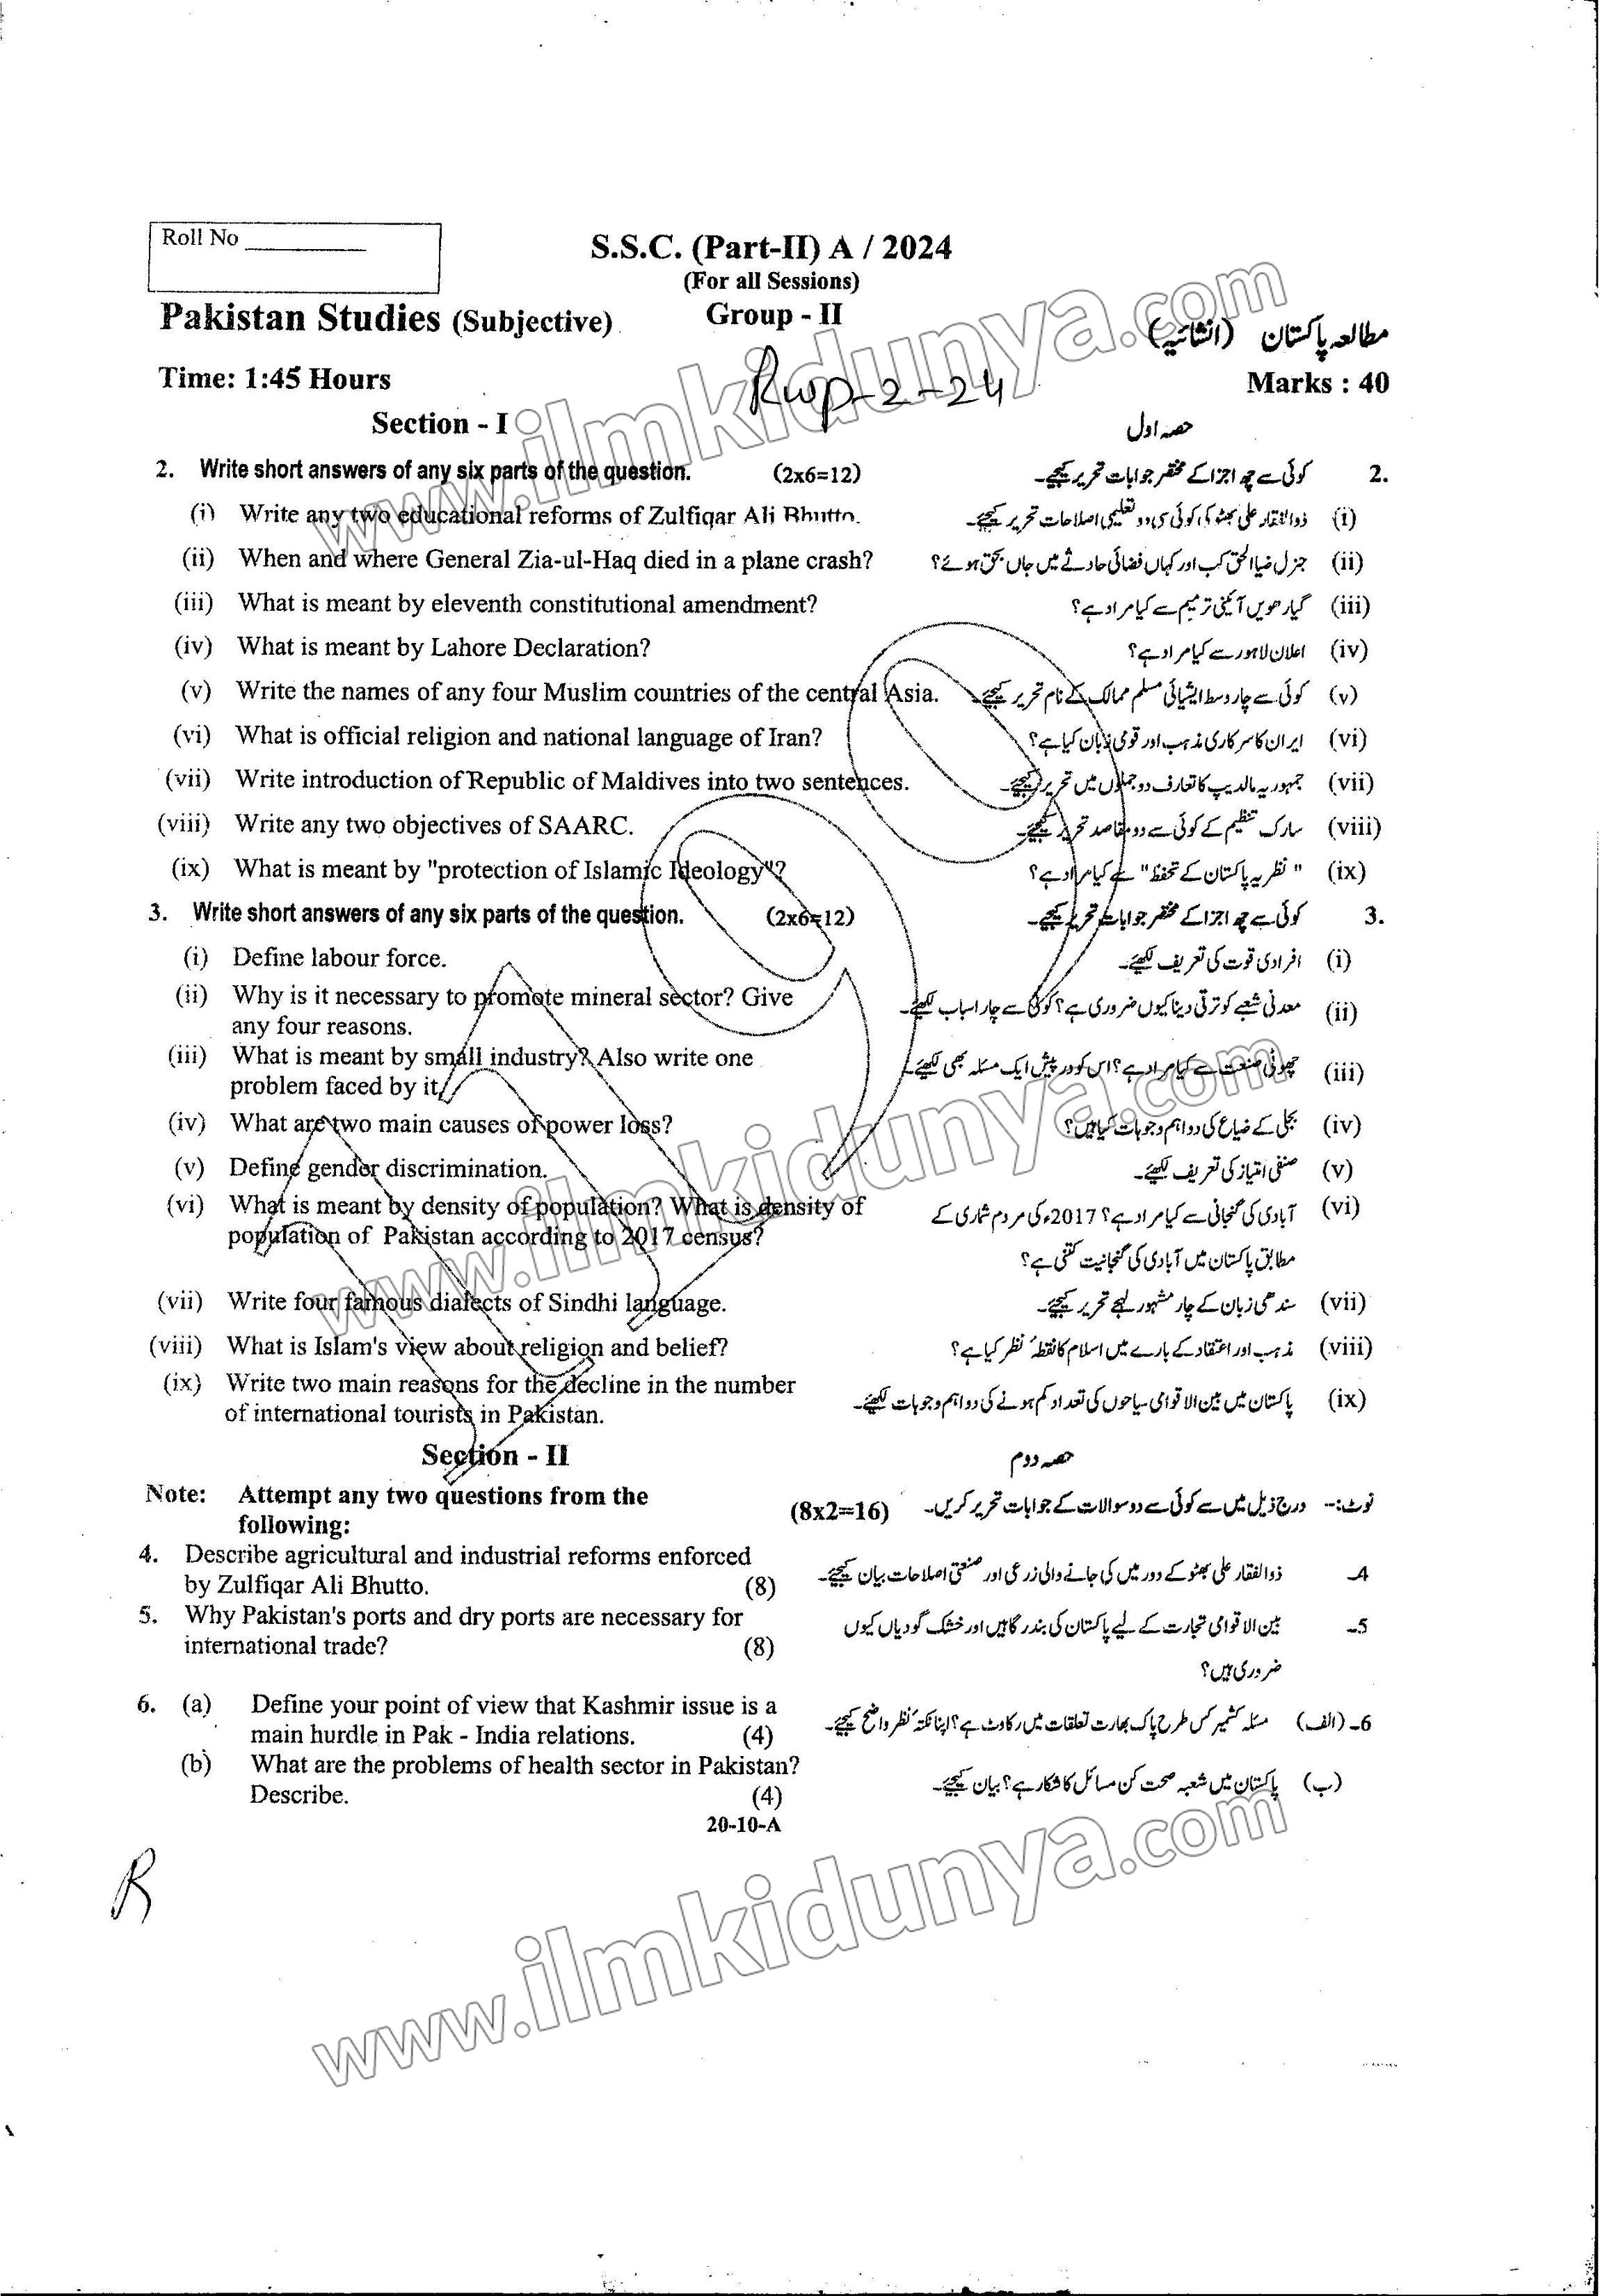 Roll No
S.S.C. (Part-II) A / 2024
(For all Sessions)
Pakistan Studies (Subjective) Group - II مطالعہ پاکستان (انشائیہ)
Time: 1:45 Hours Rwp-2-24 Marks : 40
Section - I حصہ اول
2. Write short answers of any six parts of the question. (2x6=12) کوئی سے چھ اجزا کے مختصر جوابات تحریر کیجیے۔ 2.
(i) Write any two educational reforms of Zulfiqar Ali Bhutto. ذوالفقار علی بھٹو کی کوئی سی دو تعلیمی اصلاحات تحریر کیجیئے۔ (i)
(ii) When and where General Zia-ul-Haq died in a plane crash? جنرل ضیاالحق کب اور کہاں فضائی حادثے میں جاں بحق ہوئے؟ (ii)
(iii) What is meant by eleventh constitutional amendment? گیارھویں آئینی ترمیم سے کیا مراد ہے؟ (iii)
(iv) What is meant by Lahore Declaration? اعلان لاہور سے کیا مراد ہے؟ (iv)
(v) Write the names of any four Muslim countries of the central Asia. کوئی سے چار وسط ایشیائی مسلم ممالک کے نام تحریر کیجیئے۔ (v)
(vi) What is official religion and national language of Iran? ایران کا سرکاری مذہب اور قومی زبان کیا ہے؟ (vi)
(vii) Write introduction of Republic of Maldives into two sentences. جمہوریہ مالدیپ کا تعارف دو جملوں میں تحریر کیجیئے۔ (vii)
(viii) Write any two objectives of SAARC. سارک تنظیم کے کوئی سے دو مقاصد تحریر کیجیئے۔ (viii)
(ix) What is meant by "protection of Islamic Ideology"? " نظریہ پاکستان کے تحفظ" سے کیا مراد ہے؟ (ix)
3. Write short answers of any six parts of the question. (2x6=12) کوئی سے چھ اجزا کے مختصر جوابات تحریر کیجیے۔ 3.
(i) Define labour force. افرادی قوت کی تعریف لکھیئے۔ (i)
(ii) Why is it necessary to promote mineral sector? Give معدنی شعبے کو ترقی دینا کیوں ضروری ہے؟ کوئی سے چار اسباب لکھیئے۔ (ii)
any four reasons.
(iii) What is meant by small industry? Also write one چھوٹی صنعت سے کیا مراد ہے؟ اس کو درپیش ایک مسئلہ بھی لکھیئے۔ (iii)
problem faced by it.
(iv) What are two main causes of power loss? بجلی کے ضیاع کی دو اہم وجوہات کیا ہیں؟ (iv)
(v) Define gender discrimination. صنفی امتیاز کی تعریف لکھیئے۔ (v)
(vi) What is meant by density of population? What is density of آبادی کی گنجانی سے کیا مراد ہے؟ 2017ء کی مردم شماری کے (vi)
population of Pakistan according to 2017 census? مطابق پاکستان میں آبادی کی گنجانیت کتنی ہے؟
(vii) Write four famous dialects of Sindhi language. سندھی زبان کے چار مشہور لہجے تحریر کیجیئے۔ (vii)
(viii) What is Islam's view about religion and belief? مذہب اور اعتقاد کے بارے میں اسلام کا نقطہٴ نظر کیا ہے؟ (viii)
(ix) Write two main reasons for the decline in the number پاکستان میں بین الاقوامی سیاحوں کی تعداد کم ہونے کی دو اہم وجوہات لکھیئے۔ (ix)
of international tourists in Pakistan.
Section - II حصہ دوم
Note: Attempt any two questions from the (8x2=16) نوٹ:- درج ذیل میں سے کوئی سے دو سوالات کے جوابات تحریر کریں۔
following:
4. Describe agricultural and industrial reforms enforced ذوالفقار علی بھٹو کے دور میں کی جانے والی زرعی اور صنعتی اصلاحات بیان کیجیئے۔ 4۔
by Zulfiqar Ali Bhutto. (8)
5. Why Pakistan's ports and dry ports are necessary for بین الاقوامی تجارت کے لیے پاکستان کی بندرگاہیں اور خشک گودیاں کیوں 5۔
international trade? (8) ضروری ہیں؟
6. (a) Define your point of view that Kashmir issue is a مسئلہ کشمیر کس طرح پاک بھارت تعلقات میں رکاوٹ ہے؟ اپنا نکتہٴ نظر واضح کیجیئے۔ (الف) 6۔
main hurdle in Pak - India relations. (4)
(b) What are the problems of health sector in Pakistan? پاکستان میں شعبہ صحت کن مسائل کا شکار ہے؟ بیان کیجیئے۔ (ب)
Describe. (4)
20-10-A
R
www.ilmkidunya.com
www.ilmkidunya.com
www.ilmkidunya.com